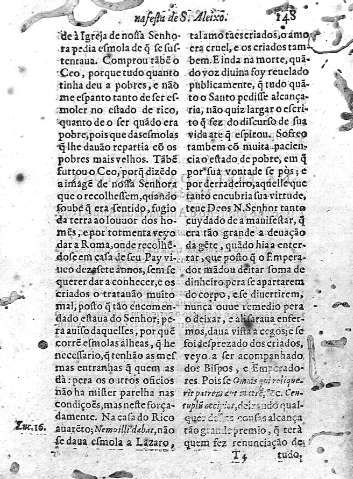 na festa de S. Aleixo.
148
de à Igreja de nossa Senho
ra pedia esmola de q̃ se sus
tentaua. Comprou tãbẽ o
Ceo, porque tudo quanto
tinha deu a pobres, e não
me espanto tanto de ser es-
moler no estado de rico,
quanto de o ser quãdo era
pobre, pois que das esmolas
q̃ lhe dauão repartia cõ os
pobres mais velhos. Tãbẽ
furtou o Ceo, porq̃ dizẽdo
a imagẽ de nossa Senhora
que o recolhessem, quando
soubè q̃ era sentido, fugio
da terra ao louuor dos ho-
mẽs, e por tormenta veyo
dar a Roma, onde recolhẽ-
dose em casa de seu Pay vi-
ueo dezasete annos, sem se
querer dar a conhecer, e os
criados o tratauão muito
mal, posto q̃ tão encomen-
dado estaua do Senhor; pe-
ra auiso daquelles, por quẽ
corrẽ esmolas alheas, q̃ he
necessario, q̃ tenhão as mes
mas entranhas q̃ quem as
dà: pera os outros oficios
não ha mister parelha nas
condições, mas neste força-
damente. Na casa do Rico
auarẽto; Nemo illi dabat, não
se daua esmola a Lázaro,
Luc. 16.
tal amo taes criados, o amo
era cruel, e os criados tam
bem. E inda na morte, quã-
do voz diuina foy reuelado
publicamente, q̃ tudo quã-
to o Santo pedisse alcança-
ria, não quiz largar o escri-
to q̃ fez do discurso de sua
vida atè q̃ espirou. Sofreo
tambem cõ muita pacien-
cia o estado de pobre, em q̃
por sua vontade se pòs; e
por derradeiro, aquelle que
tanto encubria sua virtude,
teue Deos N. Senhor tanto
cuydado de a manifestar, q̃
era tão grande a deuação
da gẽte, quãdo hia a enter-
rar, que posto q̃ o Empera-
dor mãdou deitar soma de
dinheiro pera se apartarem
do corpo, e se diuertirem,
nunca ouue remedio pera
o deixar, e alli saraua enfer-
mos, daua vista a cegos; e se
foi desprezado dos criados,
veyo a ser acompanhado
dos Bispos, e Emperado-
res Pois se Omnis qui relique-
rit patrem aut matrẽ, &c. Cen-
tuplũ accipiet, deixando qual-
quer destas cousas alcança
tão grande premio, q̃ terà
quem fez renunciação de
T 4
tudo,